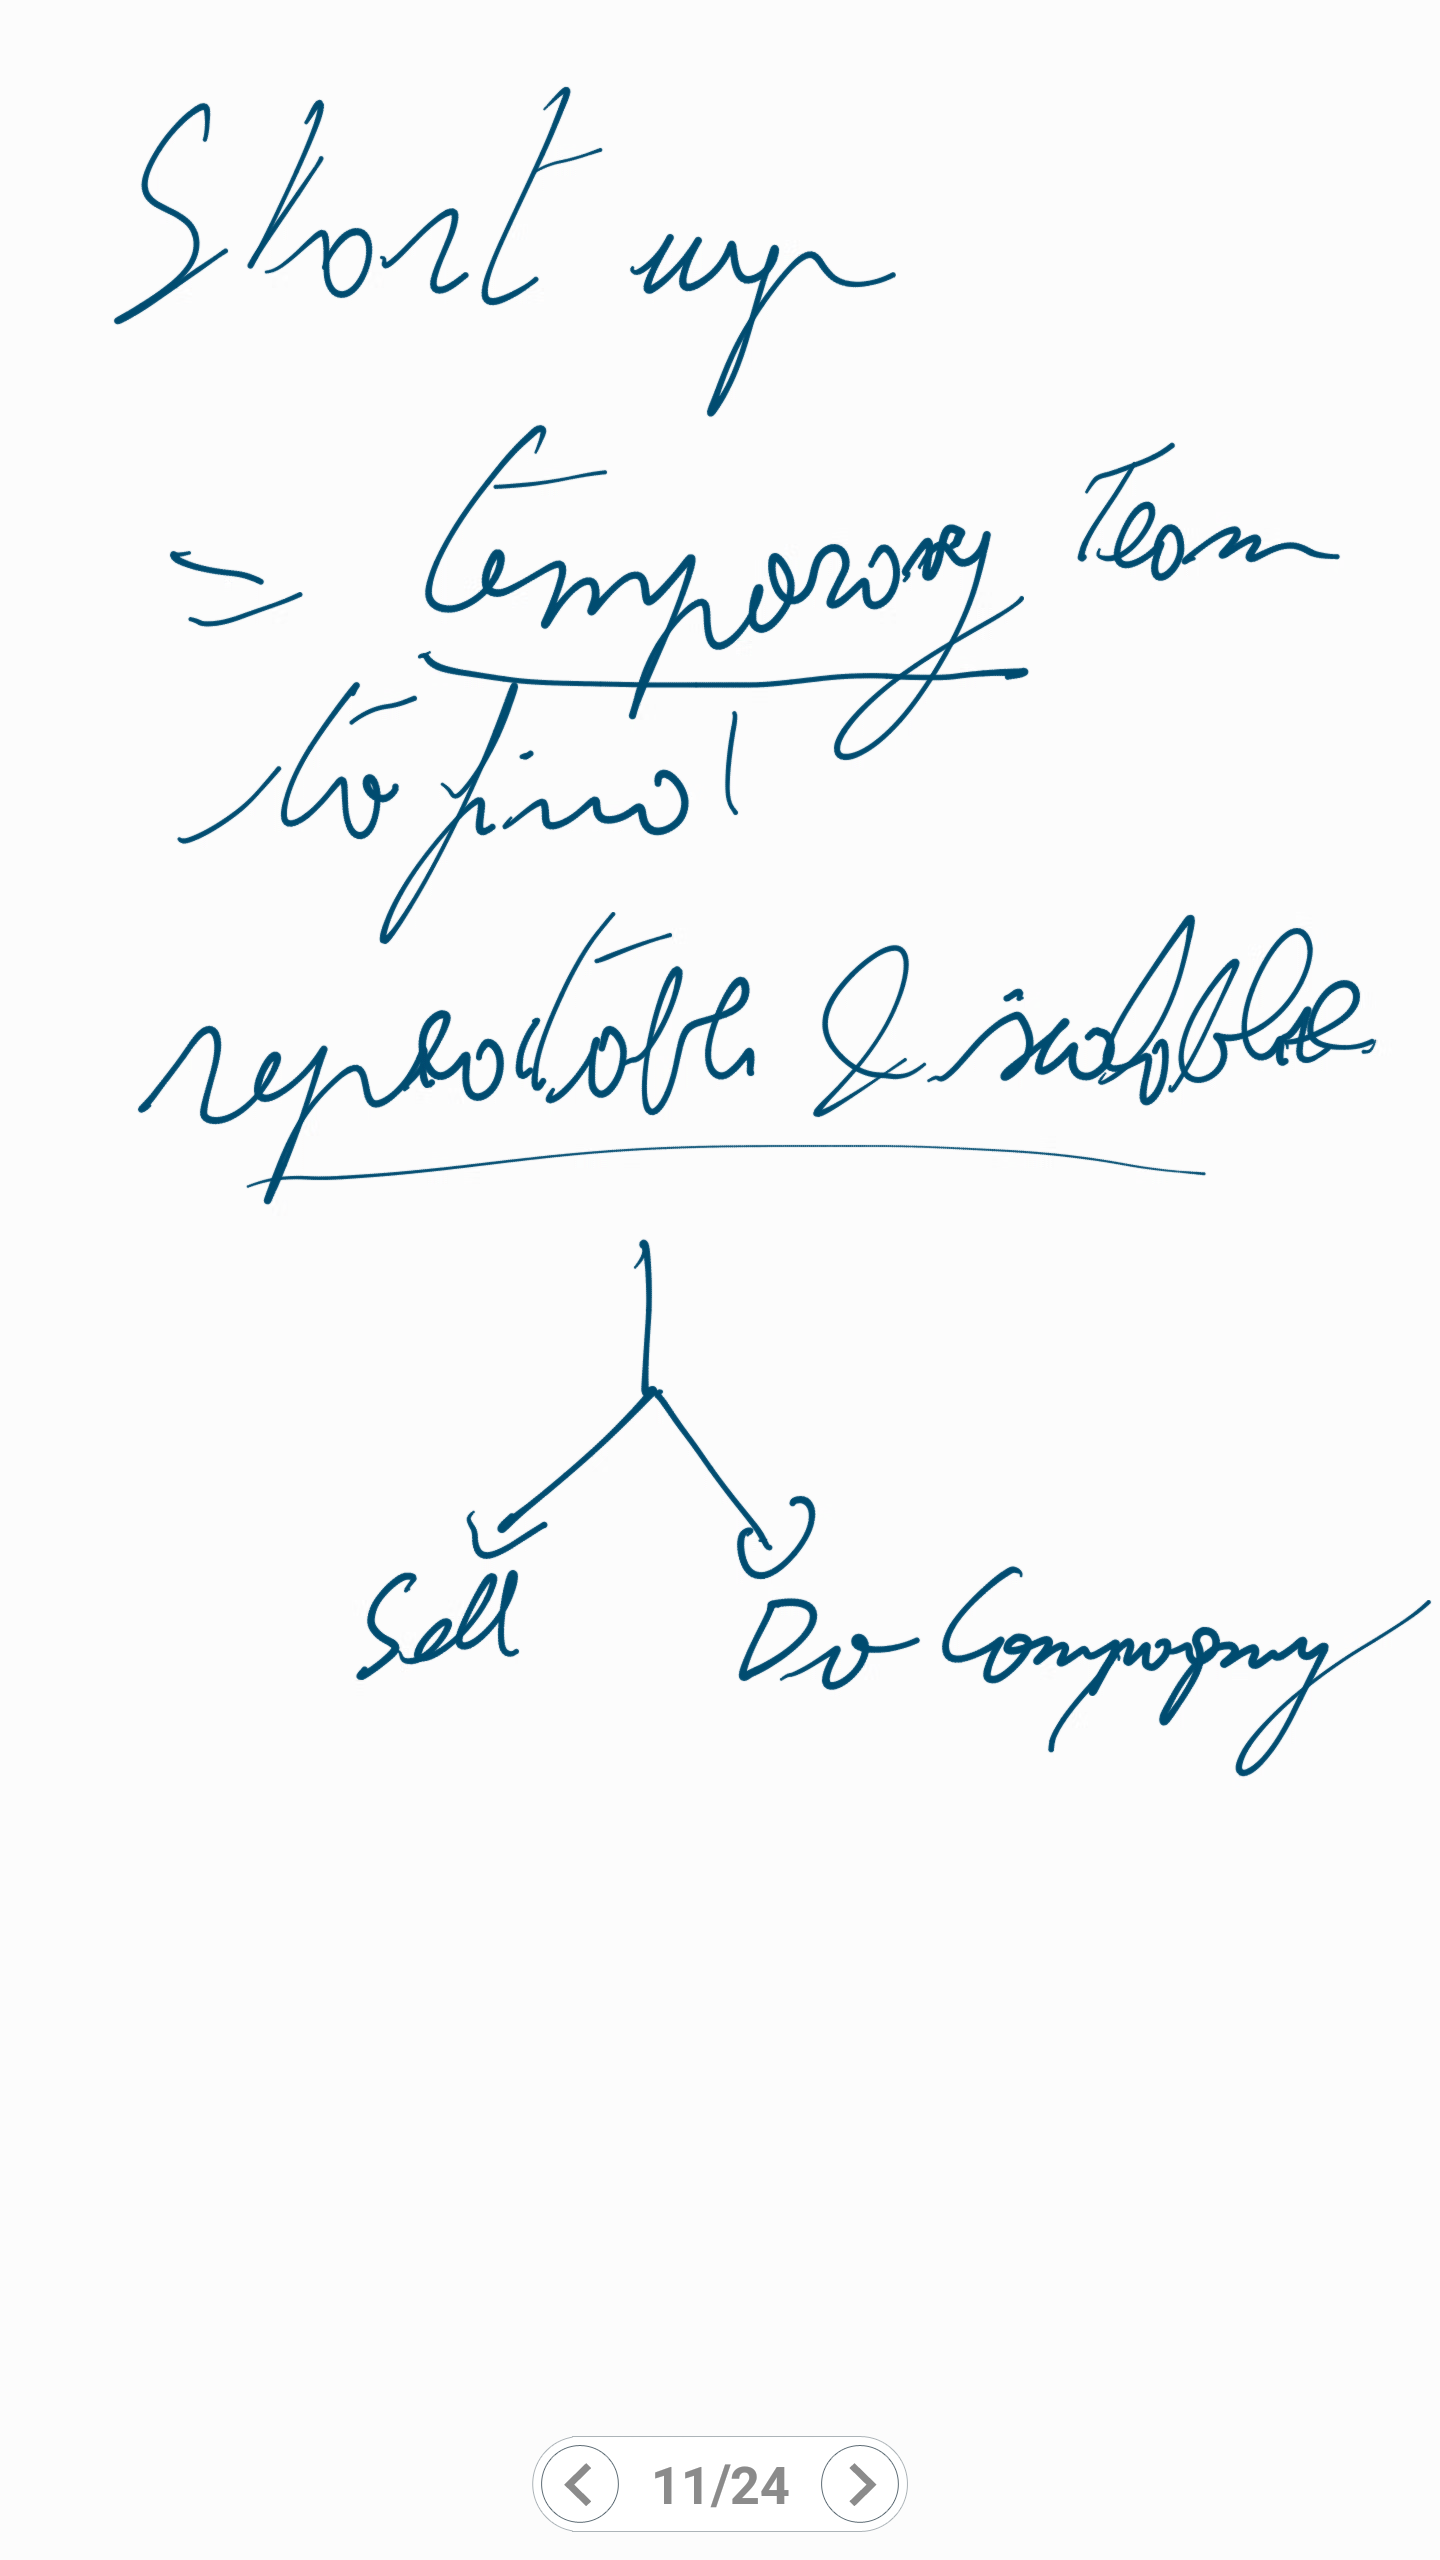 Start up
= temporary Team
to find
repeatable & scalable
Sell Do Company
11/24